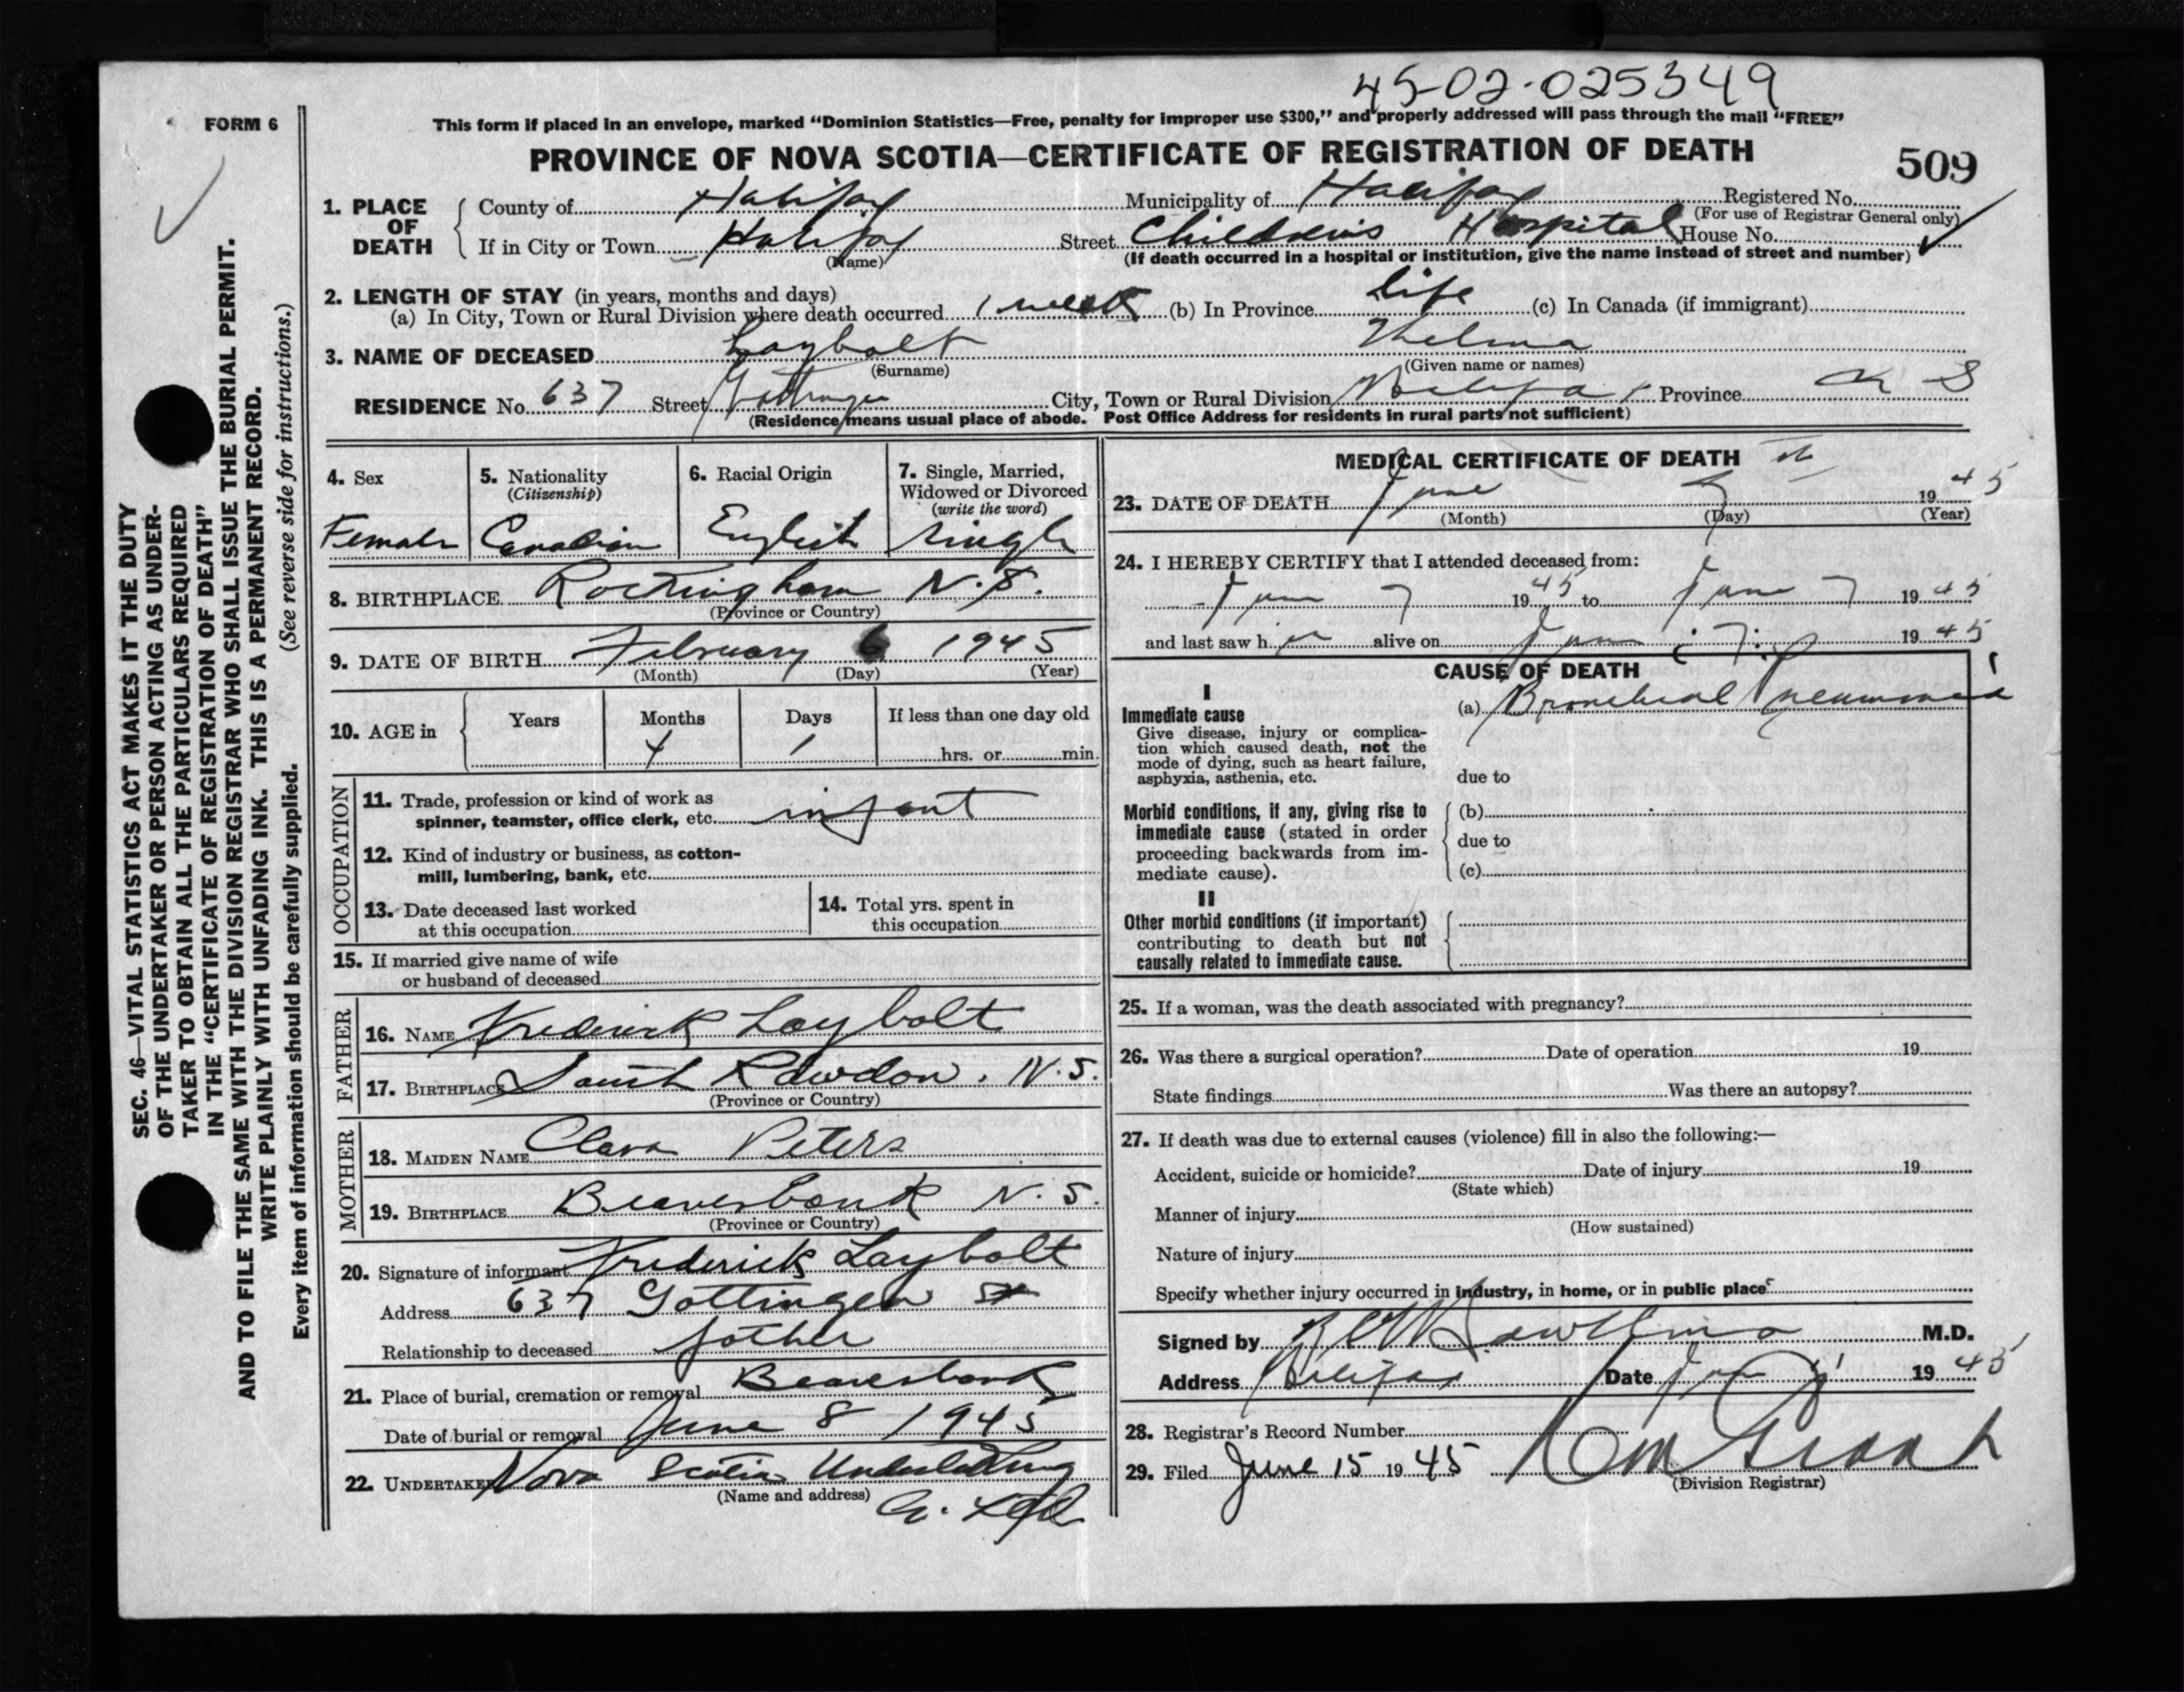 45-02-025349
FORM 6
This form if placed in an envelope, marked “Dominion Statistics—Free, penalty for improper use $300,” and properly addressed will pass through the mail “FREE”
PROVINCE OF NOVA SCOTIA—CERTIFICATE OF REGISTRATION OF DEATH
509
1. PLACE OF DEATH
County of Halifax Municipality of Halifax Registered No.
(For use of Registrar General only)
If in City or Town Halifax Street Children's Hospital House No.
(Name) (If death occurred in a hospital or institution, give the name instead of street and number)
2. LENGTH OF STAY (in years, months and days)
(a) In City, Town or Rural Division where death occurred 1 week (b) In Province life (c) In Canada (if immigrant)
3. NAME OF DECEASED Laybolt Thelma
(Surname) (Given name or names)
RESIDENCE No. 637 Street Gottingen City, Town or Rural Division Halifax Province N S
(Residence means usual place of abode. Post Office Address for residents in rural parts not sufficient)
4. Sex
Female
5. Nationality
(Citizenship)
Canadian
6. Racial Origin
English
7. Single, Married,
Widowed or Divorced
(write the word)
single
8. BIRTHPLACE Rockingham N.S.
(Province or Country)
9. DATE OF BIRTH February 6 1945
(Month) (Day) (Year)
10. AGE in
Years Months Days If less than one day old
4 1 hrs. or min.
OCCUPATION
11. Trade, profession or kind of work as
spinner, teamster, office clerk, etc. infant
12. Kind of industry or business, as cotton-
mill, lumbering, bank, etc.
13. Date deceased last worked
at this occupation
14. Total yrs. spent in
this occupation
15. If married give name of wife
or husband of deceased
FATHER
16. NAME Frederick Laybolt
17. BIRTHPLACE South Rawdon. N.S.
(Province or Country)
MOTHER
18. MAIDEN NAME Clara Peters
19. BIRTHPLACE Beaverbank N.S.
(Province or Country)
20. Signature of informant Frederick Laybolt
Address 637 Gottingen St
Relationship to deceased father
21. Place of burial, cremation or removal Beaverbank
Date of burial or removal June 8 1945
22. UNDERTAKER Nova Scotia Undertaking
(Name and address)
MEDICAL CERTIFICATE OF DEATH
23. DATE OF DEATH June 7th 1945
(Month) (Day) (Year)
24. I HEREBY CERTIFY that I attended deceased from:
June 7 1945 to June 7 1945
and last saw h er alive on June 7 1945
CAUSE OF DEATH
I
Immediate cause
Give disease, injury or complica-
tion which caused death, not the
mode of dying, such as heart failure,
asphyxia, asthenia, etc.
(a) Bronchial pneumonia
due to
Morbid conditions, if any, giving rise to
immediate cause (stated in order
proceeding backwards from im-
mediate cause).
(b)
due to
(c)
II
Other morbid conditions (if important)
contributing to death but not
causally related to immediate cause.
25. If a woman, was the death associated with pregnancy?
26. Was there a surgical operation? Date of operation 19
State findings Was there an autopsy?
27. If death was due to external causes (violence) fill in also the following:—
Accident, suicide or homicide? Date of injury 19
(State which)
Manner of injury
(How sustained)
Nature of injury
Specify whether injury occurred in industry, in home, or in public place
Signed by M.D.
Address Halifax Date June 1945
28. Registrar's Record Number
29. Filed June 15 1945
(Division Registrar)
SEC. 46—VITAL STATISTICS ACT MAKES IT THE DUTY
OF THE UNDERTAKER OR PERSON ACTING AS UNDER-
TAKER TO OBTAIN ALL THE PARTICULARS REQUIRED
IN THE “CERTIFICATE OF REGISTRATION OF DEATH”
AND TO FILE THE SAME WITH THE DIVISION REGISTRAR WHO SHALL ISSUE THE BURIAL PERMIT.
WRITE PLAINLY WITH UNFADING INK. THIS IS A PERMANENT RECORD.
Every item of information should be carefully supplied. (See reverse side for instructions.)